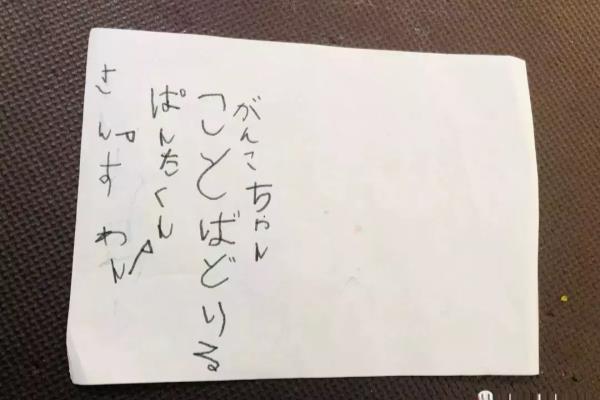 がんこちゃん
ことばどりる
ぱんだくん
さんす わん